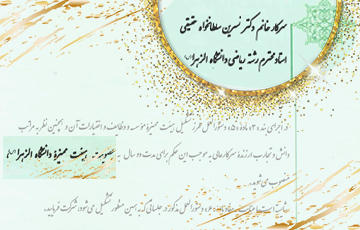 سرکار خانم دکتر نسرین سلطانخواه حقیقی
استاد محترم رشته ریاضی دانشگاه الزهرا(س)
در اجرای بند «۲» ماده «۵» دستورالعمل طرز تشکیل هیئت ممیزه مؤسسه و وظائف و اختیارات آن و همچنین نظر به مراتب
دانش و تجارب ارزنده سرکارعالی به موجب این حکم برای مدت دو سال به عضویت هیئت ممیزه دانشگاه الزهرا(س)
منصوب می‌شوید.
دستورالعمل مذکور در جلساتی که به همین منظور تشکیل می‌شود، شرکت فرمایید.